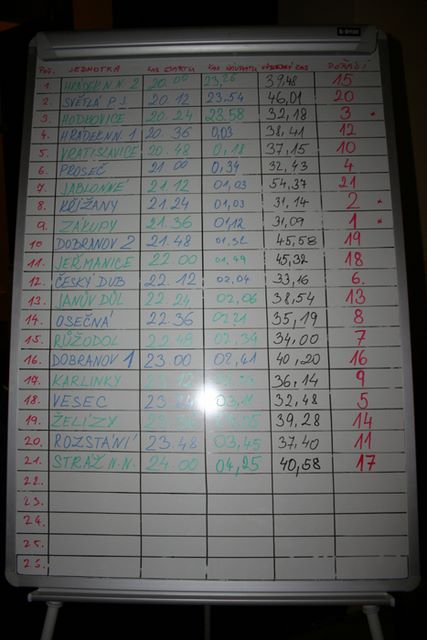 POŘ. JEDNOTKA ČAS STARTU ČAS NÁVRATU VÝSLEDNÝ ČAS POŘADÍ
1. HRÁDEK N.N. 2 20.00 23,26 39,48 15
2. SVĚTLÁ P.J. 20.12 23.54 46,01 20
3. HODKOVICE 20.24 23.58 32,18 3 *
4. HRÁDEK N.N. 1 20 36 0,03 38,41 12
5. VRATISLAVICE 20 48 0,18 37,15 10
6. PROSEČ 21 00 0,34 32,43 4
7. JABLONNÉ 21.12 01,03 54,37 21
8. KŘÍŽANY 21.24 01,03 31,14 2 *
9. ZÁKUPY 21.36 01,12 31,09 1 *
10 DOBRANOV 2 21.48 45,58 19
11. JEŘMANICE 22.00 01,49 45,32 18
12. ČESKÝ DUB 22.12 02,04 33,16 6.
13. JANŮV DŮL 22 24 02,06 38,54 13
14. OSEČNÁ 22.36 35,19 8
15. RŮŽODOL 22 48 02,34 34,00 7
16. DOBRANOV 1 23.00 02,41 40,20 16
17. KARLINKY 23 12 36,14 9
18. VESEC 32,48 5
19. ŽELÍZY 39,28 14
20. ROZSTÁNÍ 23.48 03,45 37,40 11
21. STRÁŽ N.N. 24.00 04,25 40,58 17
22.
23.
24.
25.
25.